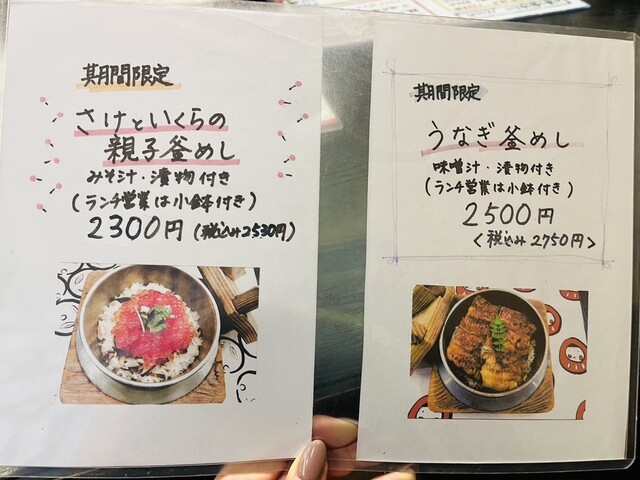 期間限定
さけといくらの
親子釜めし
みそ汁・漬物付き
(ランチ営業は小鉢付き)
2300円(税込み2530円)
期間限定
うなぎ釜めし
味噌汁・漬物付き
(ランチ営業は小鉢付き)
2500円
<税込み2750円>